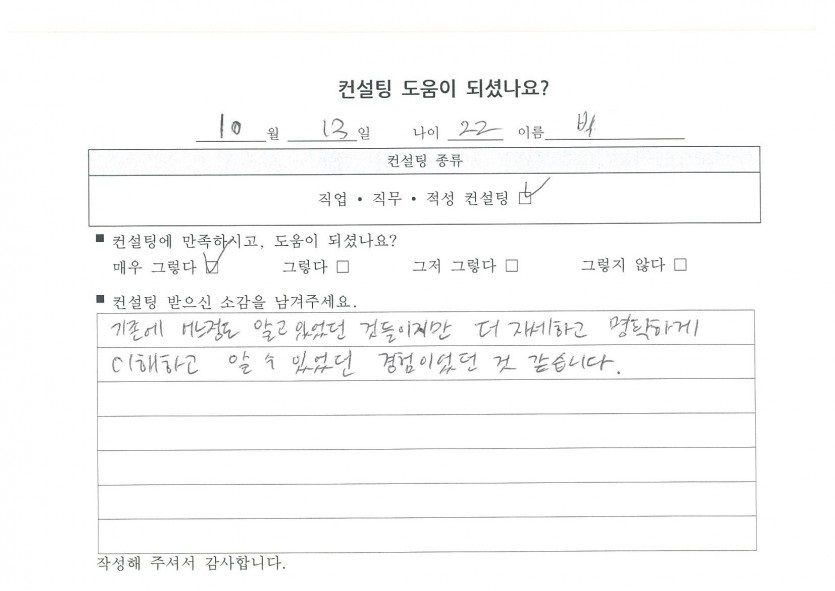 컨설팅 도움이 되셨나요?
10 월 13 일 나이 22 이름 박
컨설팅 종류
직업 • 직무 • 적성 컨설팅 ☑
■ 컨설팅에 만족하시고, 도움이 되셨나요?
매우 그렇다 ☑ 그렇다 □ 그저 그렇다 □ 그렇지 않다 □
■ 컨설팅 받으신 소감을 남겨주세요.
기존에 어느정도 알고 있었던 것들이지만 더 자세하고 명확하게
이해하고 알 수 있었던 경험이었던 것 같습니다.
작성해 주셔서 감사합니다.